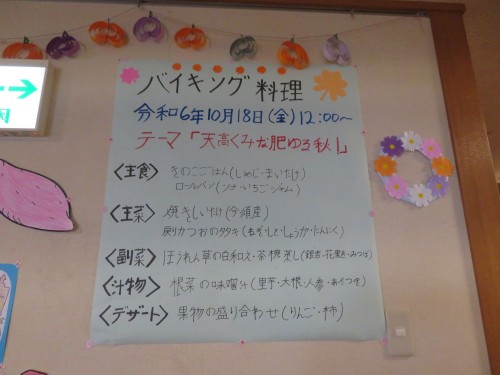 バイキング料理
令和6年10月18日(金)12:00〜
テーマ「天高くみな肥ゆる秋!」
〈主食〉 きのこごはん(しめじ・まいたけ)
ロールパン(ツナ・いちごジャム)
〈主菜〉 焼きしいたけ(今須産)
戻りかつおのタタキ(ねぎ・しそ・しょうが・にんにく)
〈副菜〉 ほうれん草の白和え・茶椀蒸し(銀杏・花麩・みつば)
〈汁物〉 根菜の味噌汁(里芋・大根・人参・あげ
〈デザート〉 果物の盛り合わせ(りんご・柿)